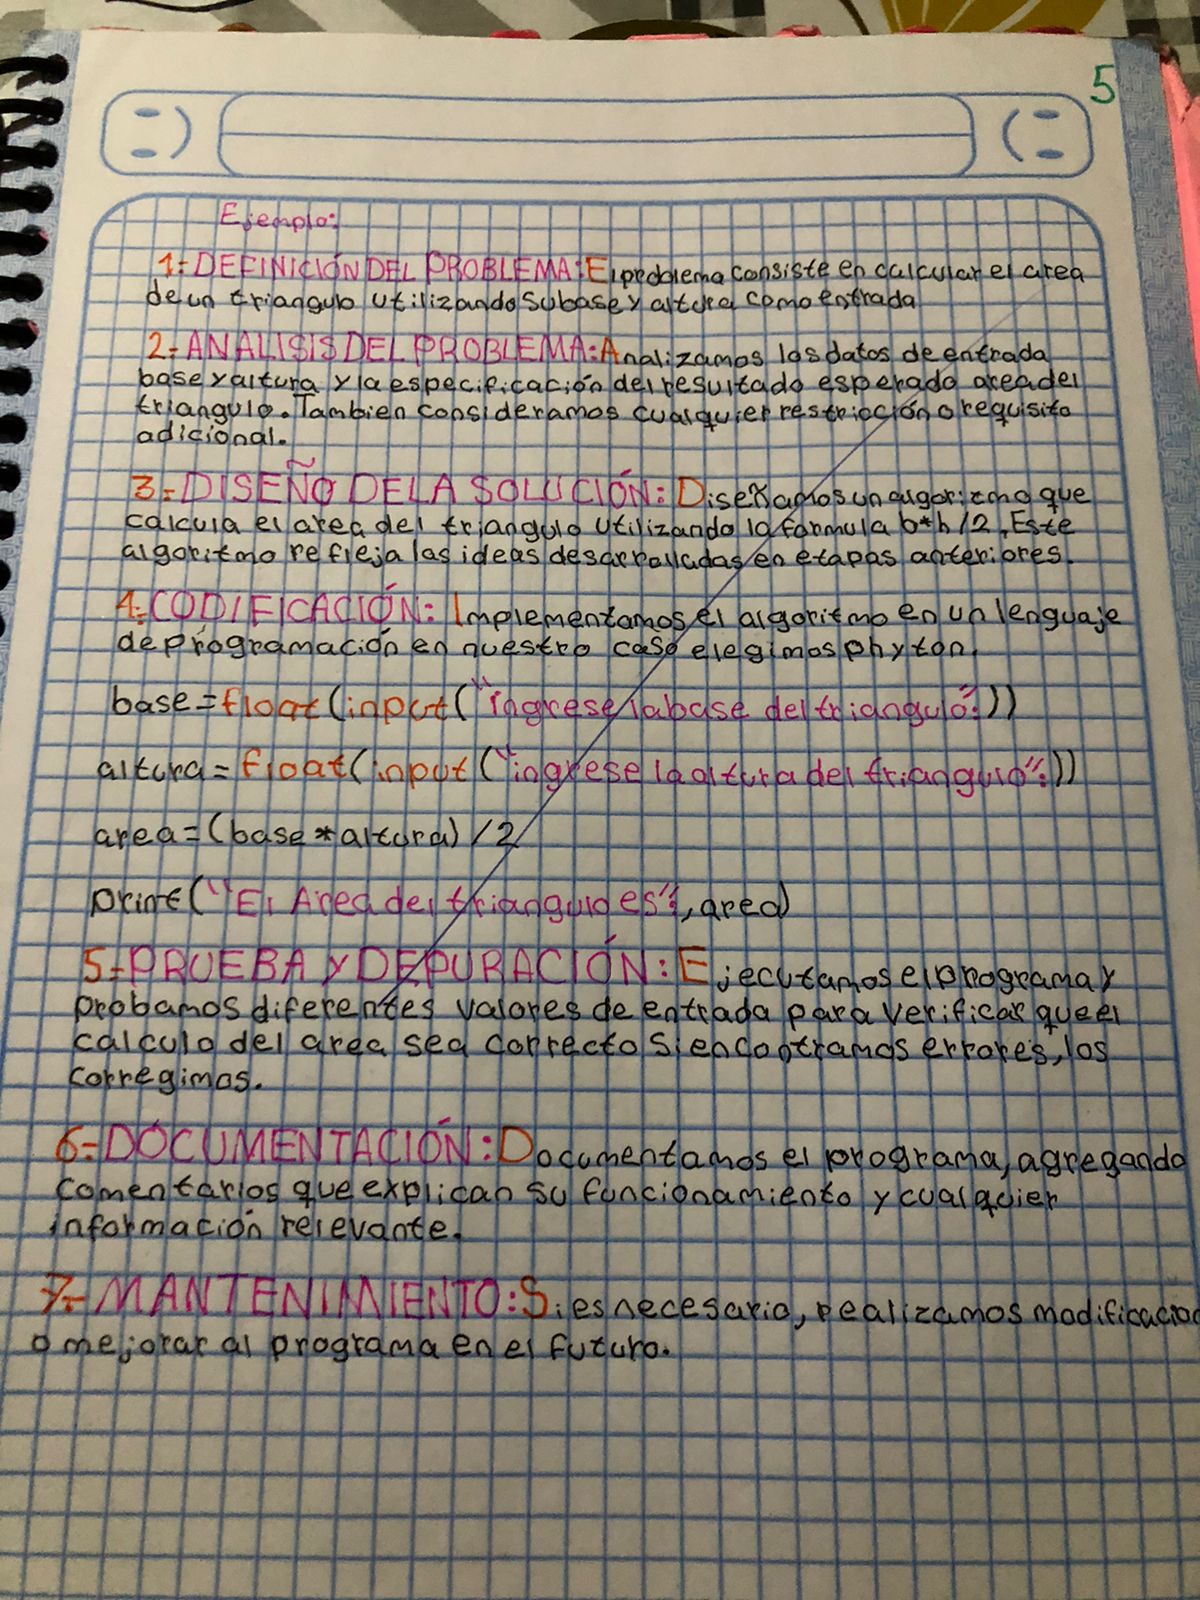 5
Ejemplo:
1-DEFINICIÓN DEL PROBLEMA: El problema consiste en calcular el area
de un triangulo utilizando su base y altura como entrada
2-ANALISIS DEL PROBLEMA: Analizamos los datos de entrada
base y altura y la especificación del resultado esperado area del
triangulo. Tambien consideramos cualquier restricción o requisito
adicional.
3-DISEÑO DE LA SOLUCIÓN: Diseñamos un algoritmo que
calcula el area del triangulo utilizando la formula b*h/2. Este
algoritmo refleja las ideas desarrolladas en etapas anteriores.
4-CODIFICACIÓN: Implementamos el algoritmo en un lenguaje
de programación en nuestro caso elegimos phyton.
base=float(input("ingrese la base del triangulo":))
altura=float(input("ingrese la altura del triangulo":))
area=(base*altura)/2
print("El Area del triangulo es":,area)
5-PRUEBA Y DEPURACIÓN: Ejecutamos el programa y
probamos diferentes valores de entrada para verificar que el
calculo del area sea correcto si encontramos errores, los
corregimos.
6-DOCUMENTACIÓN: Documentamos el programa, agregando
comentarios que explican su funcionamiento y cualquier
información relevante.
7-MANTENIMIENTO: Si es necesario, realizamos modificacion
o mejorar al programa en el futuro.